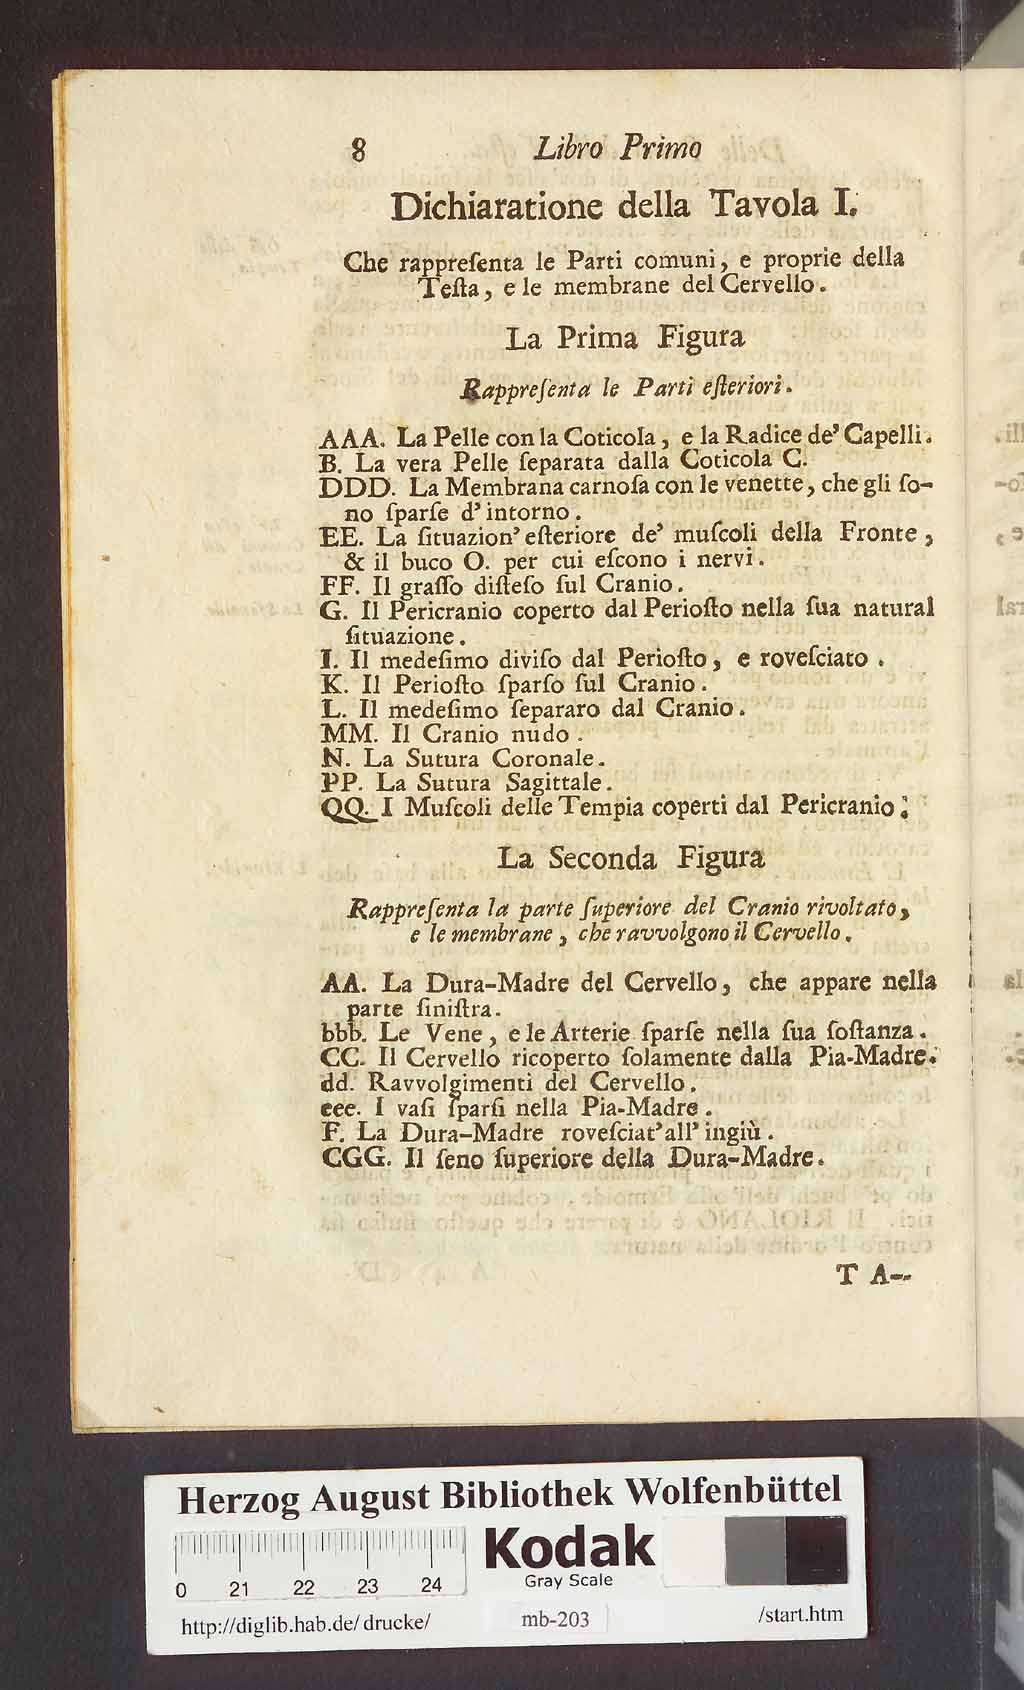 8 Libro Primo
Dichiaratione della Tavola I.
Che rappreſenta le Parti comuni, e proprie della
Teſta, e le membrane del Cervello.
La Prima Figura
Rappreſenta le Parti eſteriori.
AAA. La Pelle con la Coticola, e la Radice de' Capelli.
B. La vera Pelle ſeparata dalla Coticola C.
DDD. La Membrana carnoſa con le venette, che gli ſo-
no ſparſe d' intorno.
EE. La ſituazion' eſteriore de' muſcoli della Fronte,
& il buco O. per cui eſcono i nervi.
FF. Il graſſo diſteſo ſul Cranio.
G. Il Pericranio coperto dal Perioſto nella ſua natural
ſituazione.
I. Il medeſimo diviſo dal Perioſto, e roveſciato.
K. Il Perioſto ſparſo ſul Cranio.
L. Il medeſimo ſepararo dal Cranio.
MM. Il Cranio nudo.
N. La Sutura Coronale.
PP. La Sutura Sagittale.
QQ. I Muſcoli delle Tempia coperti dal Pericranio.
La Seconda Figura
Rappreſenta la parte ſuperiore del Cranio rivoltato,
e le membrane, che ravvolgono il Cervello.
AA. La Dura-Madre del Cervello, che appare nella
parte ſiniſtra.
bbb. Le Vene, e le Arterie ſparſe nella ſua ſoſtanza.
CC. Il Cervello ricoperto ſolamente dalla Pia-Madre.
dd. Ravvolgimenti del Cervello.
eee. I vaſi ſparſi nella Pia-Madre.
F. La Dura-Madre roveſciat' all' ingiù.
CGG. Il ſeno ſuperiore della Dura-Madre.
T A--
Herzog August Bibliothek Wolfenbüttel
0 21 22 23 24
Kodak
Gray Scale
http://diglib.hab.de/drucke/ mb-203 /start.htm